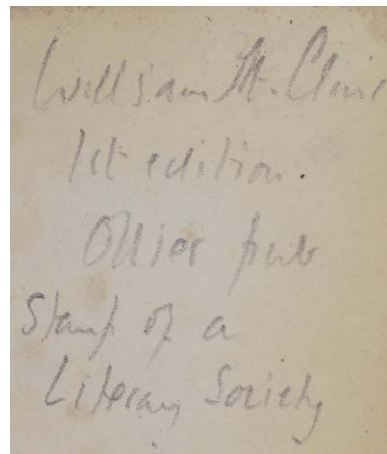 William St. Clair
1st edition.
Ollier pub
Stamp of a
Literary Society